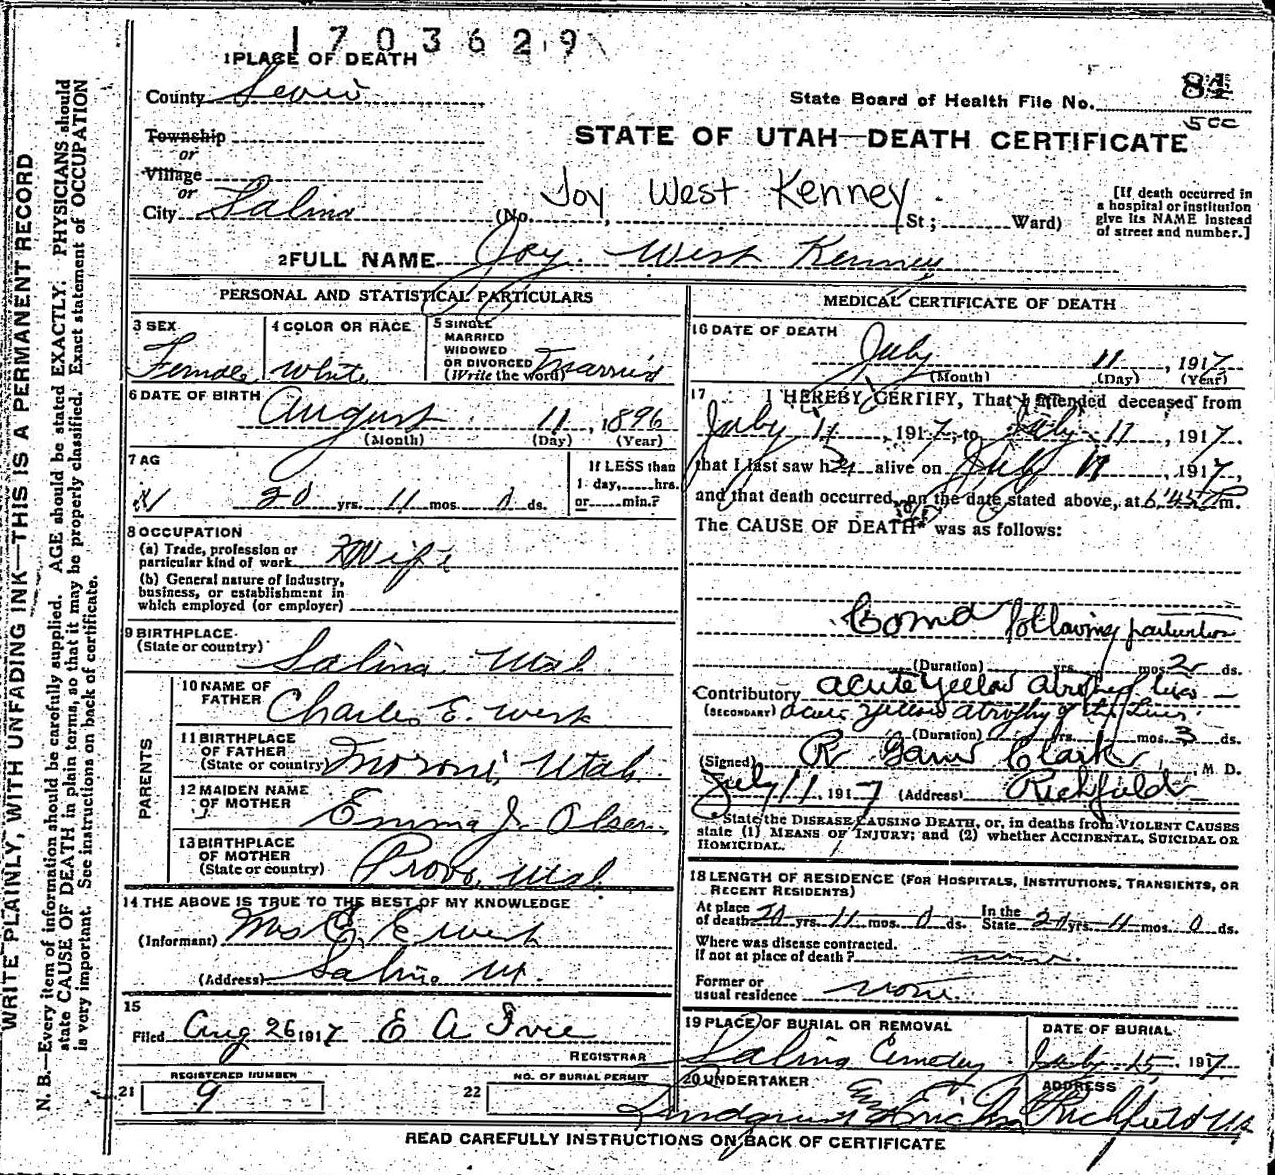 1703629
1 PLACE OF DEATH
County Sevier
State Board of Health File No. 84
Township
or
STATE OF UTAH—DEATH CERTIFICATE
Village
or
City Salina (No. Joy West Kenney St.; Ward)
[If death occurred in
a hospital or institution
give its NAME instead
of street and number.]
2 FULL NAME Joy West Kenney
PERSONAL AND STATISTICAL PARTICULARS
3 SEX
Female
4 COLOR OR RACE
White
5 SINGLE
MARRIED
WIDOWED
OR DIVORCED
(Write the word) Married
6 DATE OF BIRTH
August 11, 1896
(Month) (Day) (Year)
7 AG
20 yrs. 11 mos. 0 ds.
If LESS than
1 day, hrs.
or min.?
8 OCCUPATION
(a) Trade, profession or
particular kind of work HWife
(b) General nature of industry,
business, or establishment in
which employed (or employer)
9 BIRTHPLACE
(State or country)
Salina Utah
PARENTS
10 NAME OF
FATHER
Charles E. West
11 BIRTHPLACE
OF FATHER
(State or country) Moroni, Utah
12 MAIDEN NAME
OF MOTHER
Emma J. Olsen
13 BIRTHPLACE
OF MOTHER
(State or country) Provo, Utah
14 THE ABOVE IS TRUE TO THE BEST OF MY KNOWLEDGE
(Informant) Mrs C. E West
(Address) Salina Ut.
15
Filed Aug 26 1917 E A
REGISTRAR
REGISTERED NUMBER
21 9
NO. OF BURIAL PERMIT
22
MEDICAL CERTIFICATE OF DEATH
16 DATE OF DEATH
July 11, 1917
(Month) (Day) (Year)
17 I HEREBY CERTIFY, That I attended deceased from
July 11, 1917, to July 11, 1917
that I last saw her alive on July 11, 1917,
and that death occurred, on the date stated above, at 6:45 P m.
The CAUSE OF DEATH* was as follows:
Coma following parturition
(Duration) yrs. mos. 2 ds.
Contributory acute yellow atrophy liver
(SECONDARY) acute yellow atrophy of the liver.
(Duration) yrs. mos. 3 ds.
(Signed) R Garn Clark, M. D.
July 11, 1917 (Address) Richfield
State the DISEASE CAUSING DEATH, or, in deaths from VIOLENT CAUSES
state (1) MEANS OF INJURY; and (2) whether ACCIDENTAL, SUICIDAL OR
HOMICIDAL.
18 LENGTH OF RESIDENCE (FOR HOSPITALS, INSTITUTIONS, TRANSIENTS, OR
RECENT RESIDENTS)
At place
of death 20 yrs. 11 mos. 0 ds.
In the
State 20 yrs. 11 mos. 0 ds.
Where was disease contracted.
if not at place of death?
Former or
usual residence none.
19 PLACE OF BURIAL OR REMOVAL
Salina Cemetery
DATE OF BURIAL
July 15, 1917
20 UNDERTAKER
ADDRESS
Richfield Ut
READ CAREFULLY INSTRUCTIONS ON BACK OF CERTIFICATE
WRITE PLAINLY, WITH UNFADING INK—THIS IS A PERMANENT RECORD
N. B.—Every item of information should be carefully supplied. AGE should be stated EXACTLY. PHYSICIANS should
state CAUSE OF DEATH in plain terms, so that it may be properly classified. Exact statement of OCCUPATION
is very important. See instructions on back of certificate.